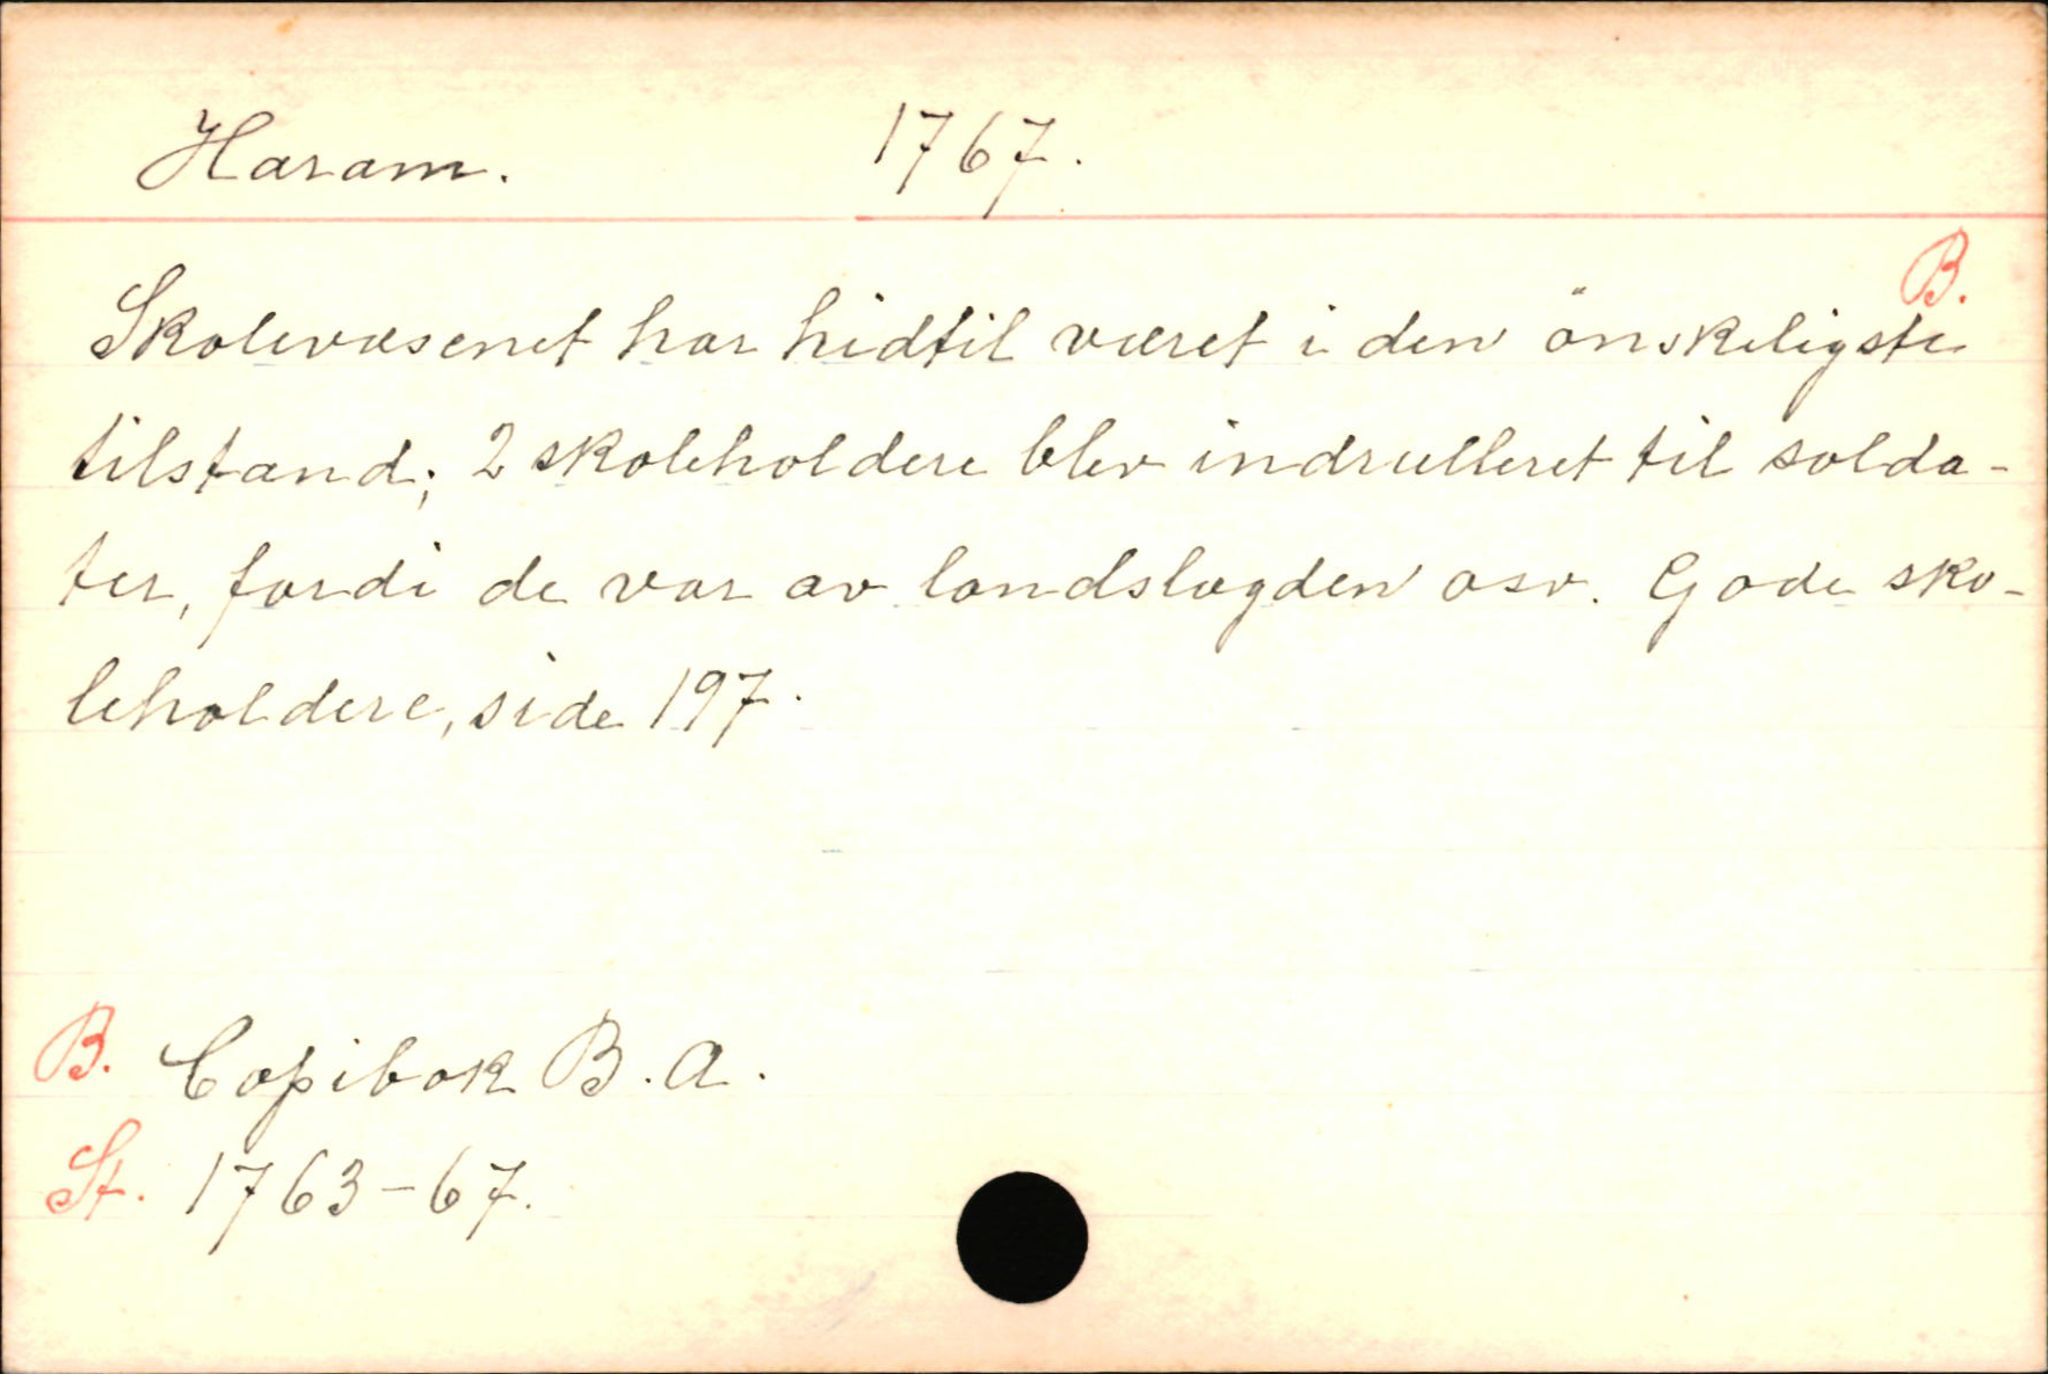 Haram. 1767.
B.
Skolevæsenet har hidtil været i den önskeligste
tilstand; 2 skoleholdere blev indrulleret til solda-
ter, fordi de var av landslægden osv. Gode sko-
leholdere, side 197.
B. Copibok B. A.
St. 1763-67.